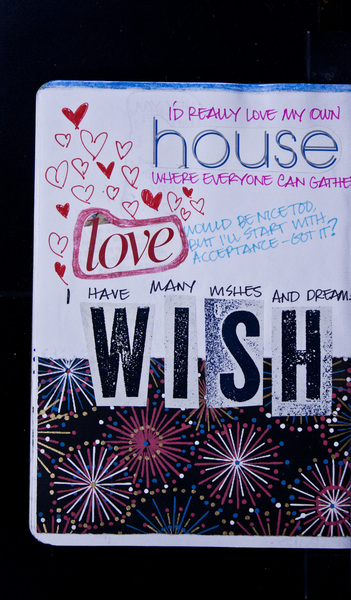 I'D REALLY LOVE MY OWN
house
WHERE EVERYONE CAN GATHE
love
WOULD BE NICE TOO,
BUT I'LL START WITH
ACCEPTANCE - GOT IT?
I HAVE MANY WISHES AND DREAMS
WISH